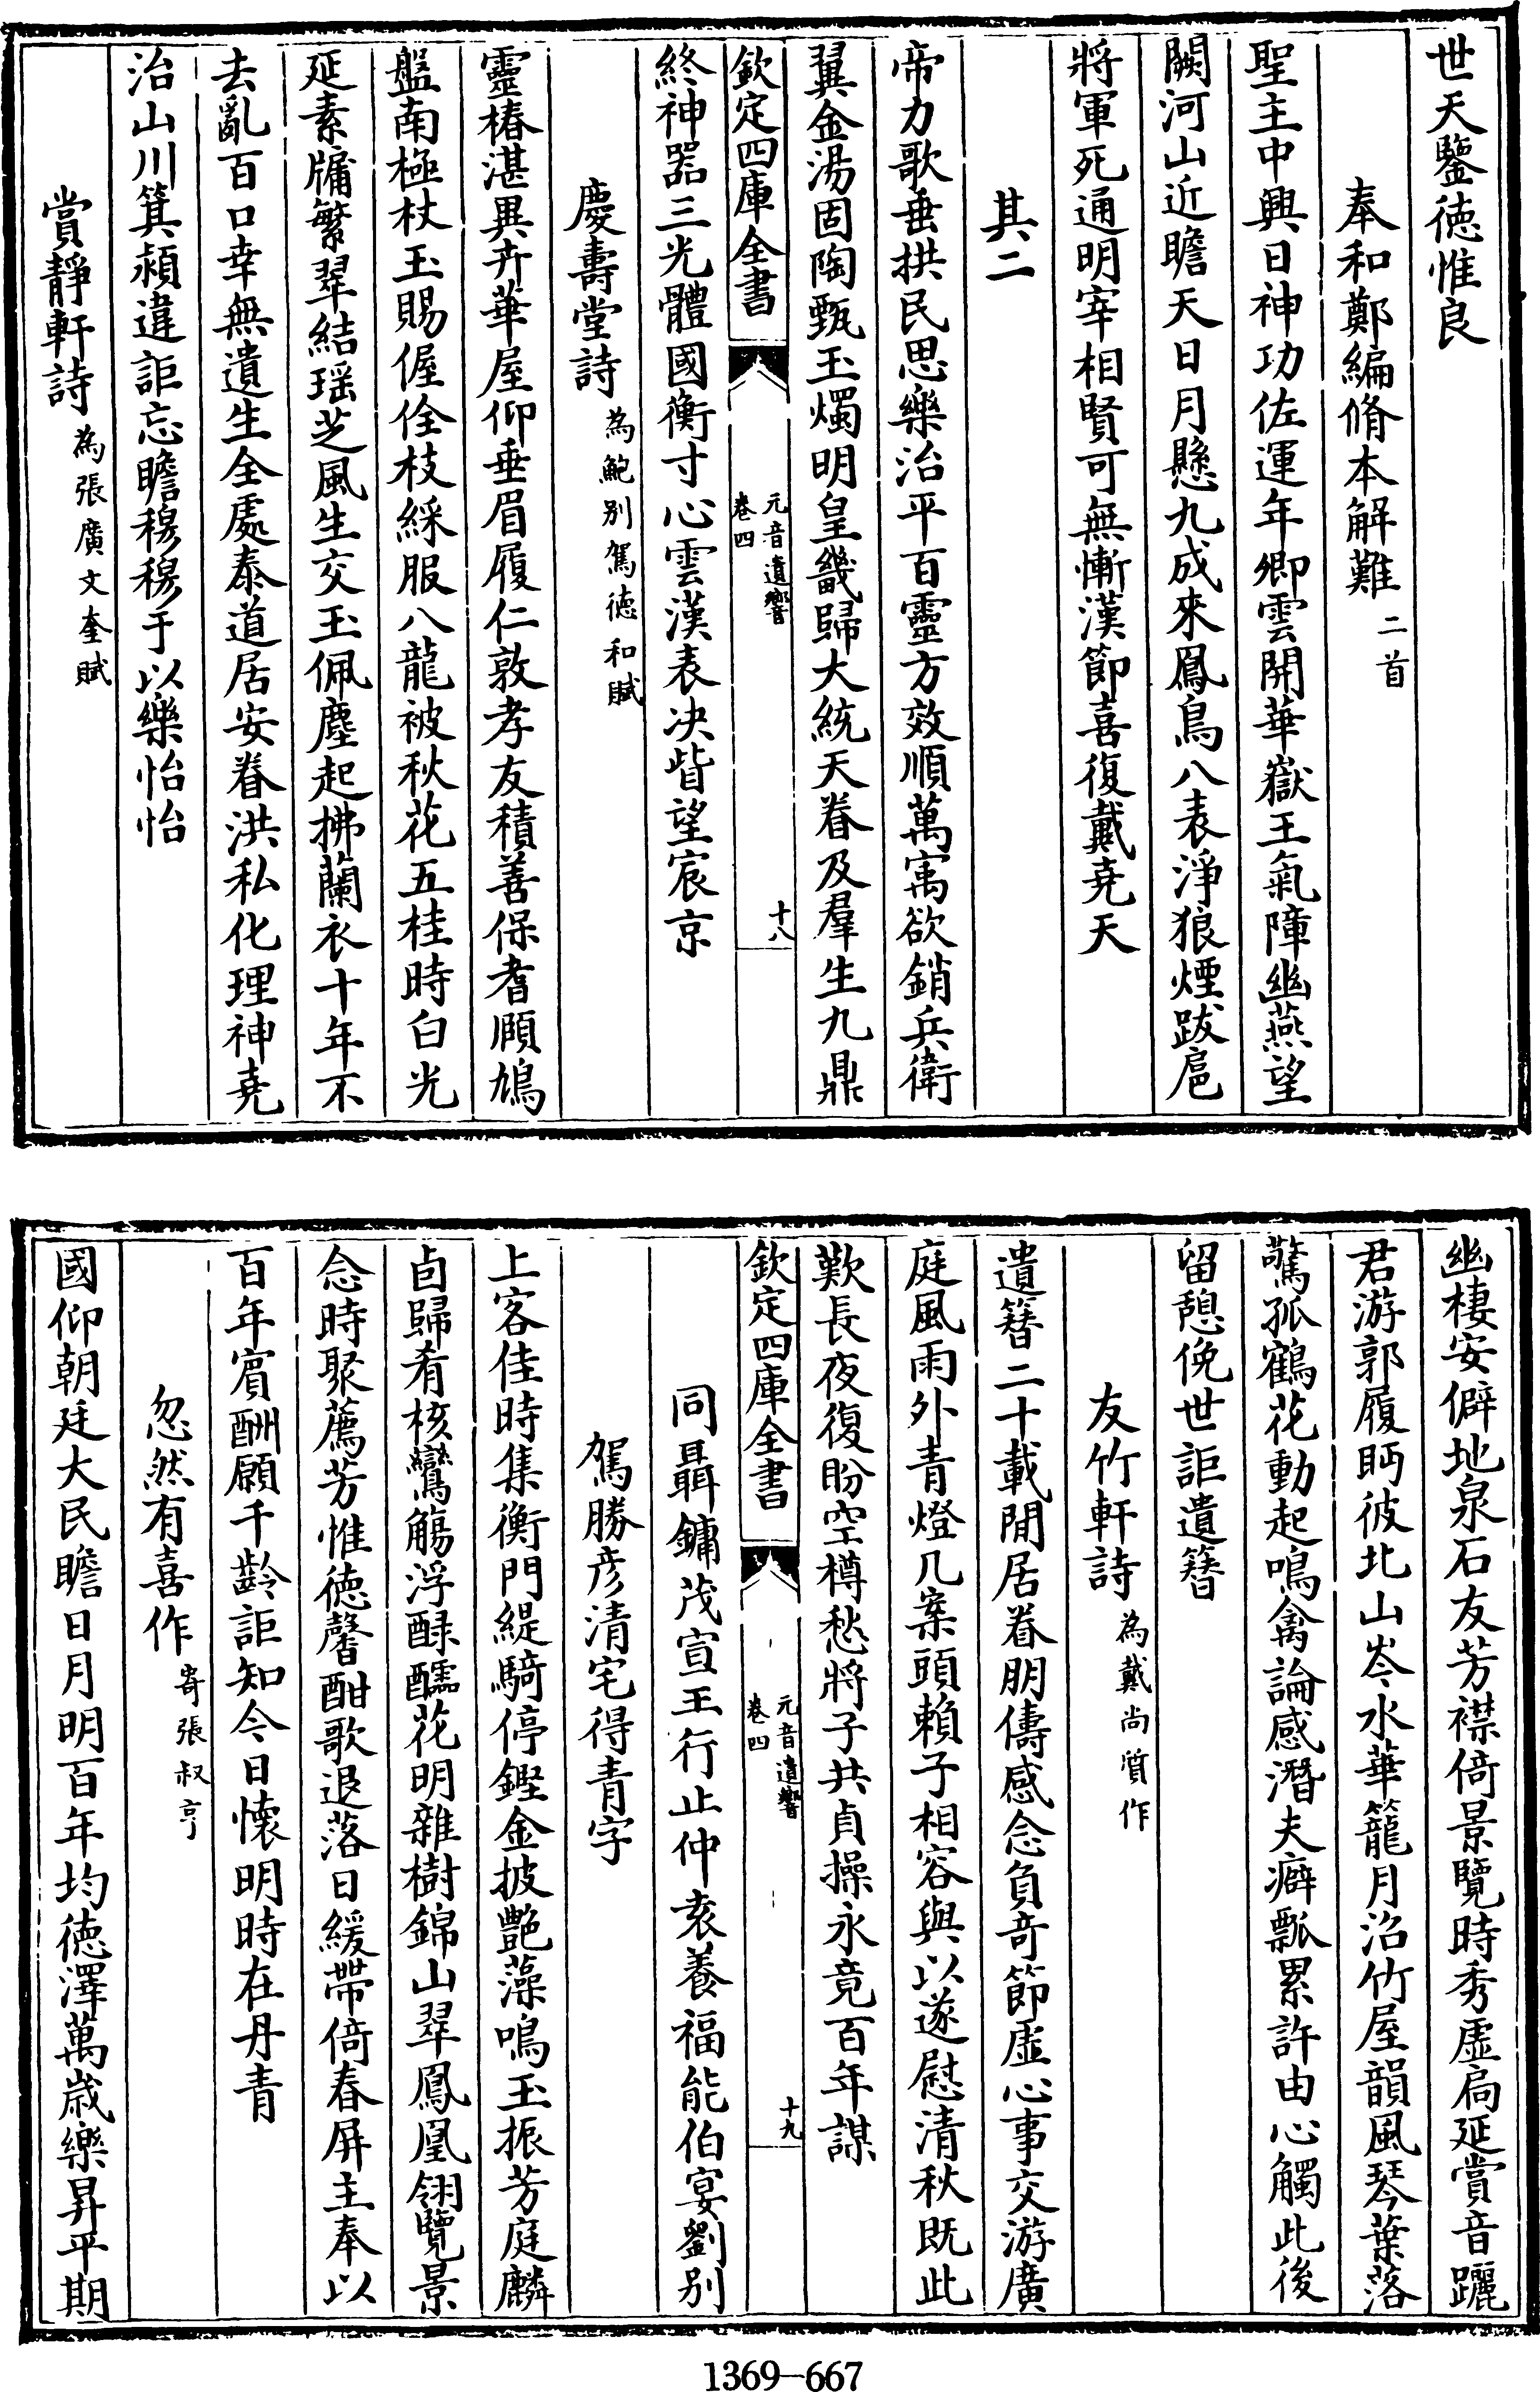 世天鑒徳惟良
奉和鄭編脩本解難二首
聖主中興日神功佐運年卿雲開華嶽王氣障幽燕望
闕河山近瞻天日月懸九成來鳳鳥八表淨狼煙跋扈
將軍死通明宰相賢可無慚漢節喜復戴堯天
其二
帝力歌垂拱民思樂治平百靈方效順萬寓欲銷兵衛
翼金湯固陶甄玉燭明皇畿歸大統天眷及羣生九鼎
欽定四庫全書
元音遺響
卷四
十八
終神器三光體國衡寸心雲漢表决眥望宸京
慶壽堂詩為鮑别駕徳和賦
靈椿湛異卉華屋仰垂眉履仁敦孝友積善保耆頤鳩
盤南極杖玉賜偓佺枝綵服八龍被秋花五桂時白光
延素牗繁翠結瑶芝風生交玉佩塵起拂蘭衣十年不
去亂百口幸無遺生全處泰道居安眷洪私化理神堯
治山川箕潁違詎忘瞻穆穆于以樂怡怡
賞靜軒詩為張廣文奎賦
幽棲安僻地泉石友芳襟倚景覽時秀虛扃延賞音躧
君游郭履眄彼北山岑水華籠月沼竹屋韻風琴葉落
驚孤鶴花動起鳴禽論感潛夫癖瓢累許由心觸此後
留憩俛世詎遺簪
友竹軒詩為戴尚質作
遺簪二十載閒居眷朋儔感念負竒節虛心事交游廣
庭風雨外青燈几案頭賴子相容與以遂慰清秋既此
歎長夜復盼空樽愁將子共貞操永竟百年謀
欽定四庫全書
元音遺響
卷四
十九
同聶鏞茂宣王行止仲袁養福能伯宴劉别
駕勝彦清宅得青字
上客佳時集衡門緹騎停鏗金披艶藻鳴玉振芳庭麟
卣歸肴核鸞觴浮醁醽花明雜樹錦山翠鳳凰翎覽景
念時聚薦芳惟徳馨酣歌退落日緩帶倚春屏主奉以
百年賓酬願千齡詎知今日懷明時在丹青
忽然有喜作寄張叔亨
國仰朝廷大民瞻日月明百年均徳澤萬歲樂昇平期
1369—667